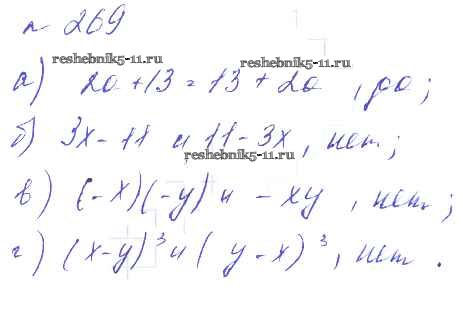 № 269
reshebnik5-11.ru
а) 2a + 13 = 13 + 2a , да ;
reshebnik5-11.ru
б) 3x - 11 и 11 - 3x , нет ;
reshebnik5-11.ru
в) (-x)(-y) и - xy , нет ;
г) (x-y)³ и (y-x)³ , нет .